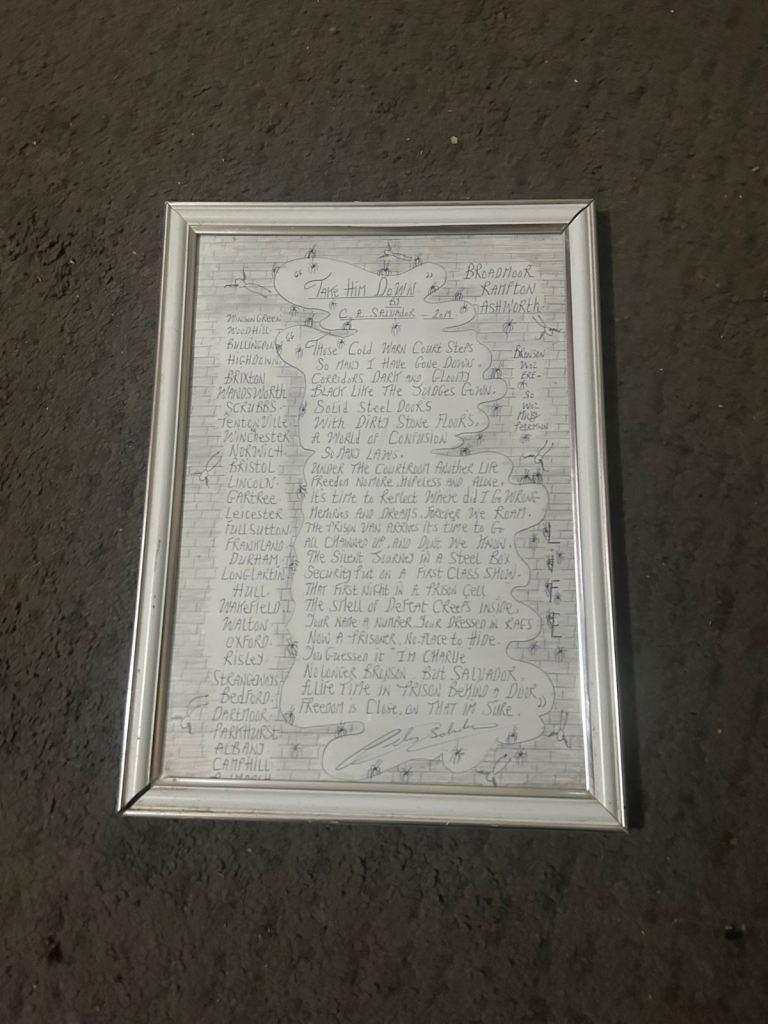 "Take Him Down"
BY
C.A. SALVADOR - 2019
BROADMOOR
RAMPTON
ASHWORTH
WINSON GREEN
WOODHILL
BULLINGDON
HIGHDOWN
BRIXTON
WANDSWORTH
SCRUBBS
PENTONVILLE
WINCHESTER
NORWICH
BRISTOL
LINCOLN
GARTREE
LEICESTER
FULLSUTTON
FRANKLAND
DURHAM
LONGLARTIN
HULL
WAKEFIELD
WALTON
OXFORD
RISLEY
STRANGEWAYS
BEDFORD
DARTMOOR
PARKHURST
ALBANY
CAMPHILL
"Those Cold Warn Court Steps
So MANY I HAVE GONE DOWN.
CORRIDORS DARK AND GLOOMY
BLACK LIKE THE JUDGES GOWN.
SOLID STEEL DOORS
WITH DIRTY STONE FLOORS,
A WORLD OF CONFUSION
SO MANY LAWS.
UNDER THE COURTROOM ANOTHER LIFE
FREEDOM NO MORE, HOPELESS AND ALONE.
IT'S TIME TO REFLECT WHERE DID I GO WRONG
MEMORIES AND DREAMS, FOREVER WE ROAM.
THE PRISON VAN ARRIVES IT'S TIME TO GO
ALL CHAINED UP, AND DONT WE KNOW.
THE SILENT JOURNEY IN A STEEL BOX
SECURITY PUT ON A FIRST CLASS SHOW.
THAT FIRST NIGHT IN A PRISON CELL
THE SMELL OF DEFEAT CREEPS INSIDE,
YOUR NAME A NUMBER, YOUR DRESSED IN RAGS
NOW A PRISONER, NO PLACE TO HIDE.
YOU GUESSED IT "IM CHARLIE"
NO LONGER BRONSON BUT SALVADOR,
A LIFE TIME IN PRISON BEHIND A DOOR,
FREEDOM IS CLOSE, ON THAT IM SURE."
BRONSON
WOZ
ERE-
SO
WOZ
L
I
F
E